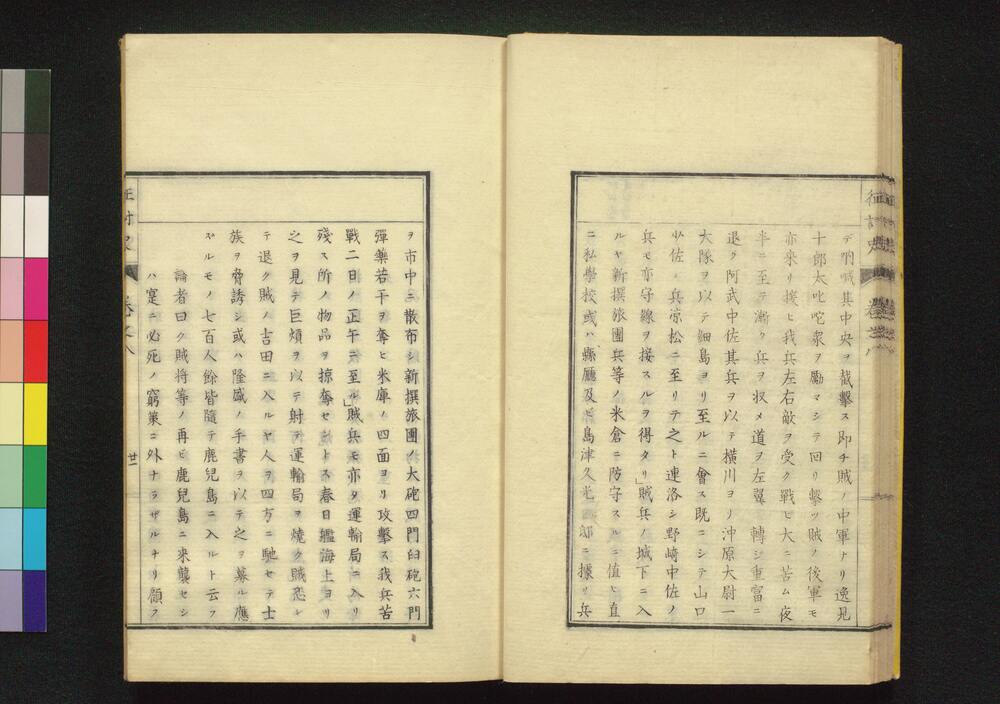 デ吶喊其中央ヲ截擊ス即チ賊ノ中軍ナリ逸見
十郎太叱咤衆ヲ勵マシテ回リ擊ツ賊ノ後軍モ
亦來リ接ヒ我兵左右敵ヲ受ク戰ヒ大ニ苦ム夜
半ニ至テ漸ク兵ヲ収メ道ヲ左翼ニ轉シ重富ニ
退ク阿武中佐其兵ヲ以テ橫川ヨリ沖原大尉一
大隊ヲ以テ細島ヨリ至ルニ會ス既ニシテ山口
少佐ノ兵崇松ニ至リテ之ト連洛シ野崎中佐ノ
兵モ亦守線ヲ接スルヲ得タリ」賊兵ノ城下ニ入
ルヤ新撰旅團兵等ノ米倉ニ防守スルニ値ヒ直
ニ私學校或ハ縣廳及ヒ島津久光ノ邸ニ據リ兵
征討史
卷之八
ヲ市中ニ散布シ新撰旅團ノ大砲四門臼砲六門
彈藥若干ヲ奪ヒ米庫ノ四面ヨリ攻擊ス我兵苦
戰二日ノ正午ニ至ル」賊兵モ亦タ運輸局ニ入リ
殘ス所ノ物品ヲ掠奪セントス春日艦海上ヨリ
之ヲ見テ巨熕ヲ以テ射テ運輸局ヲ燒ク賊恐レ
テ退ク賊ノ吉田ニ入ルヤ人ヲ四方ニ馳セテ士
族ヲ脅誘シ或ハ隆盛ノ手書ヲ以テ之ヲ募ル應
スルモノ七百人餘皆隨テ鹿兒島ニ入ルト云フ
論者曰ク賊將等ノ再ヒ鹿兒島ニ來襲セシ
ハ寔ニ必死ノ窮策ニ外ナラザルナリ顧フ
征討史
卷之八
廿一